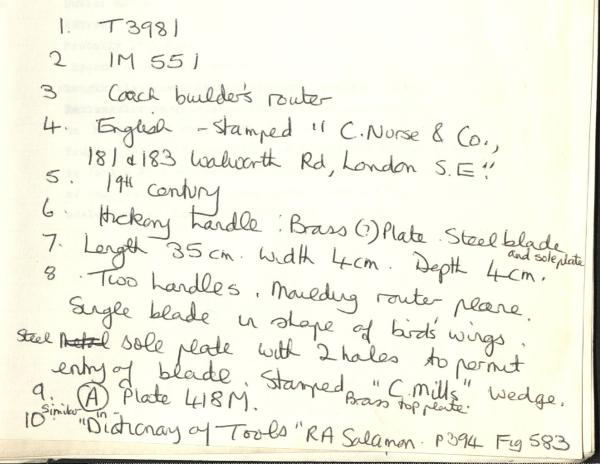 1. T3981
2 IM 551
3 Coach builder's router
4. English - stamped " C. Nurse & Co.,
181 & 183 Walworth Rd, London S.E."
5. 19th century
6 Hickory handle : Brass (?) Plate. Steel blade
and sole plate
7. Length 35cm. Width 4cm. Depth 4cm.
8. Two handles. Moulding router plane.
Single blade in shape of bird's wings.
Steel sole plate with 2 holes to permit
entry of blade. Stamped "C. Mills" wedge.
Brass top plate.
9. (A) Plate 418M.
10 Similar in "Dictionary of Tools" RA Salaman. P394 Fig 583